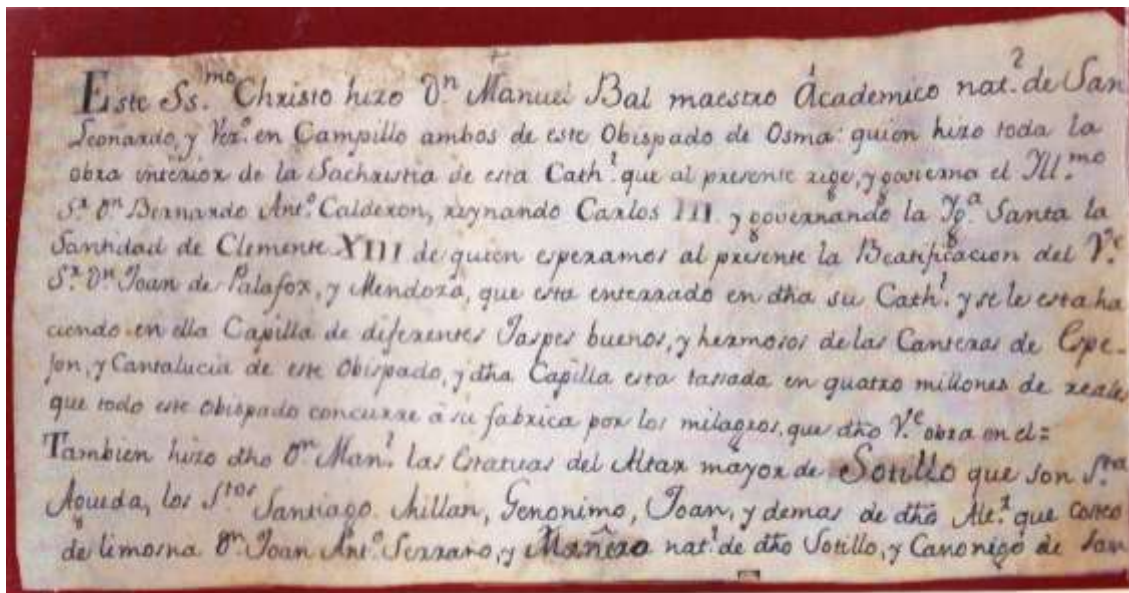 Este Ss.mo Christo hizo Dn Manuel Bal maestro Academico nat.l de San
Leonardo, y Vez.o en Campillo ambos de este Obispado de Osma: quien hizo toda la
obra interior de la Sachristia de esta Cath.l que al presente rige, y govierna el Ill.mo
S.r Dn Bernardo Ant.o Calderon, reynando Carlos III. y governando la Yg.a Santa la
Santidad de Clemente XIII de quien esperamos al presente la Beatificacion del V.e
S.r Dn Joan de Palafox, y Mendoza, que esta enterrado en dha su Cath.l y se le esta ha
ciendo en ella Capilla de diferentes Jaspes buenos, y hermosos de las Canteras de Espe-
jon, y Cantalucia de este Obispado, y dha Capilla esta tassada en quatro millones de reales
que todo este obispado concurre à su fabrica por los milagros, que dho V.e obra en el=
Tambien hizo dho Dn Man.l las Estatuas del Altar mayor de Sotillo que son S.ta
Agueda, los S.tos Santiago, Millan, Geronimo, Joan, y demas de dho Alt.r que costeo
de limosna Dn Joan Ant.o Serrano, y Mañero nat.l de dho Sotillo, y Canonigo de San